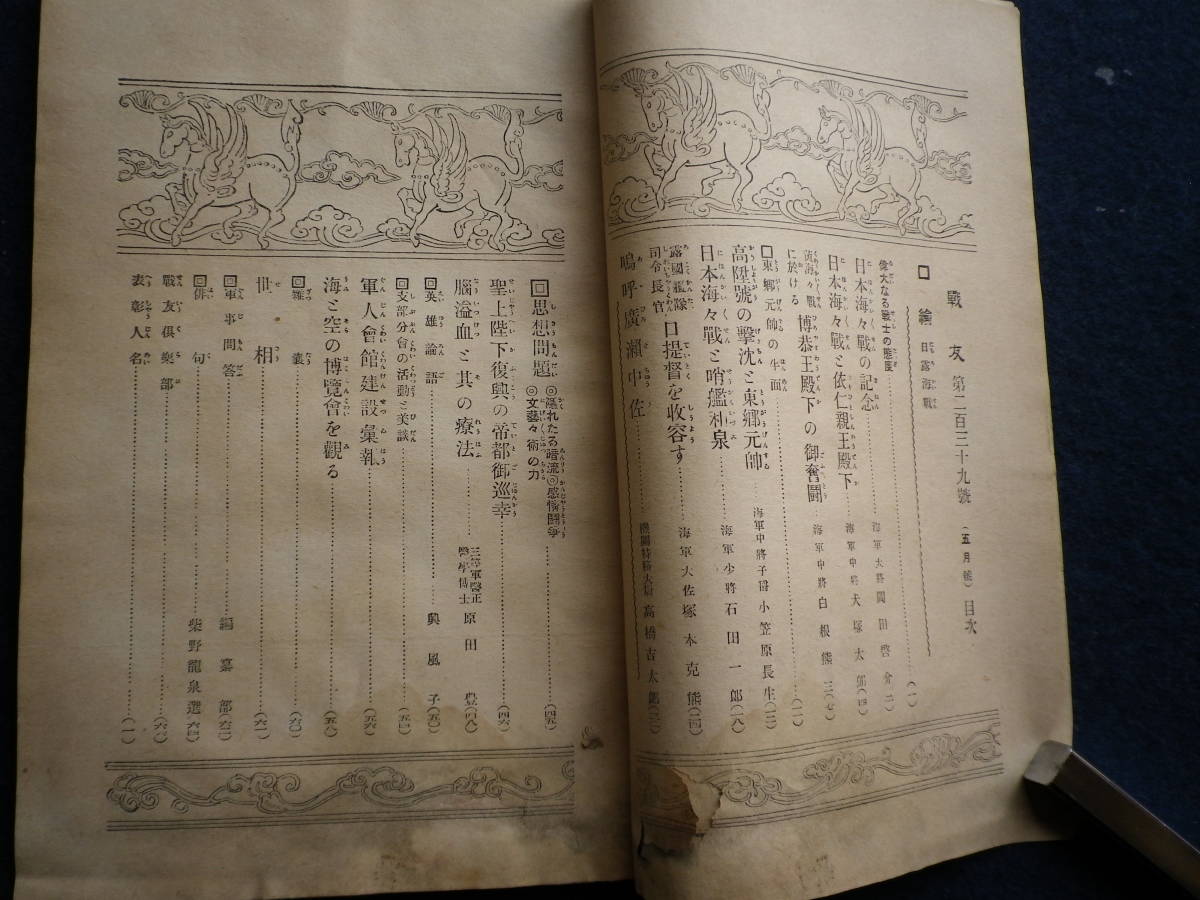 戰友 第二百三十九號 (五月號) 目次
口繪 日露海戰
偉大なる戰士の態度 (一)
日本海々戰の記念 海軍大將 田啓介 (二)
日本海々戰と依仁親王殿下 海軍中將 大塚太郎 (四)
黄海々戰に於ける 博恭王殿下の御奮鬪 海軍中將 白根熊三 (七)
東鄕元帥の半面 (一一)
高陞號の擊沈と東鄕元帥 海軍中將子爵 小笠原長生 (一二)
日本海々戰と哨艦和泉 海軍少將 石田一郎 (一八)
露國艦隊司令長官 ロ提督を收容す 海軍大佐 塚本克熊 (二四)
嗚呼廣瀨中佐 機關特務大尉 高橋吉太郎
思想問題 ◎隱れたる暗流◎感情鬪爭 ◎文藝々術の力 (四五)
聖上陛下復興の帝都御巡幸 (四六)
腦溢血と其の療法 三等軍醫正 醫學博士 原田豊 (四八)
英雄論語 興風子 (五〇)
支部分會の活動と美談 (五四)
軍人會館建設彙報 (五六)
海と空の博覽會を觀る (五八)
雜嚢 (六〇)
世相 (六一)
軍事問答 編纂部 (六二)
俳句 柴野龍泉選 (六四)
戰友俱樂部 (六六)
表彰人名 (一)